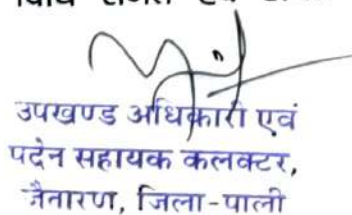 उपखण्ड अधिकारी एवं
पदेन सहायक कलक्टर,
जैतारण, जिला-पाली